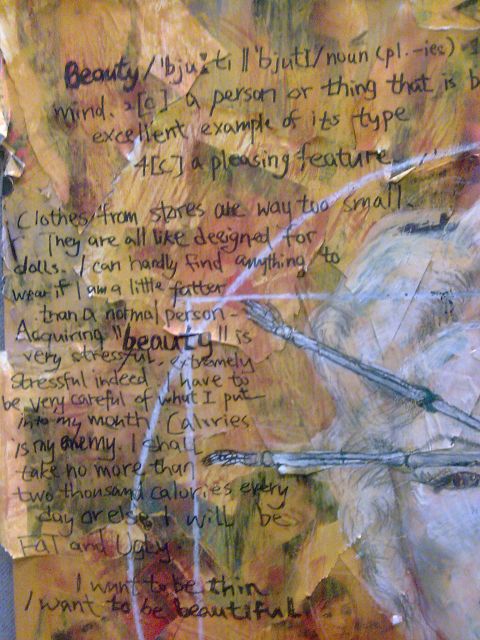 Beauty /'bju:ti || 'bjutI/ noun (pl. -ies)
mind. 2[c] a person or thing that is
excellent example of its type
4[c] a pleasing feature
Clothes from stores are way too small.
They are all like designed for
dolls. I can hardly find anything to
wear if I am a little fatter
than a normal person.
Acquiring "beauty" is
very stressful, extremely
stressful indeed. I have to
be very careful of what I put
into my month. Calories
is my enemy. I shall
take no more than
two thousand calories every
day or else I will be
Fat and Ugly
I want to be thin
I want to be beautiful